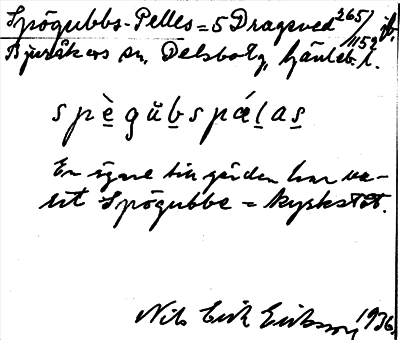 Spögubbs-Pelles = 5 Dragsved 265/1152 fb.
Bjuråkers sn, Delsbo tg, Gävleb. l.
spègŭbspálas
En ägare till gården har va-
rit Spögubbe = kyrkstöt.
Nils Erik Eriksson 1936.